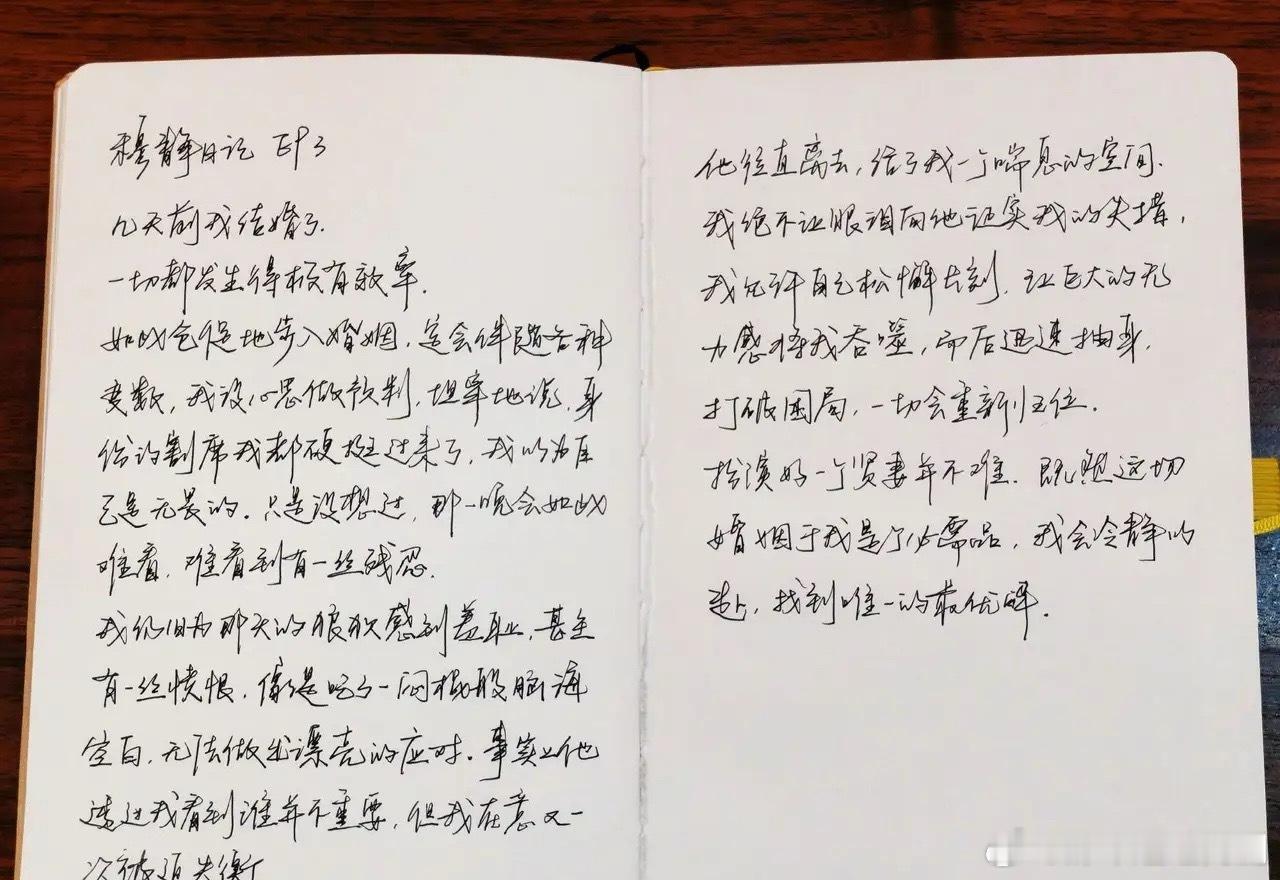 穆静日记 EP3
几天前我结婚了.
一切都发生得极有效率.
如此仓促地步入婚姻, 定会伴随各种
变数, 我没心思做预判, 坦率地说, 身
份的割席我都硬挺过来了, 我以为自
己是无畏的. 只是没想过, 那一晚会如此
难看, 难看到有一丝残忍.
我仍旧为那天的狼狈感到羞耻, 甚至
有一丝愤恨, 像是吃了一闷棍般脑海
空白, 无法做出漂亮的应对. 事实上他
透过我看到谁并不重要, 但我在意又一
次被迫失衡
他径直离去, 给了我一个喘息的空间.
我绝不让眼泪向他证实我的失措,
我允许自己松懈片刻, 让巨大的无
力感将我吞噬, 而后迅速抽身.
打破困局, 一切会重新归位.
扮演好一个贤妻并不难. 既然这切
婚姻于我是个必需品, 我会冷静以
赴, 找到唯一的最优解.